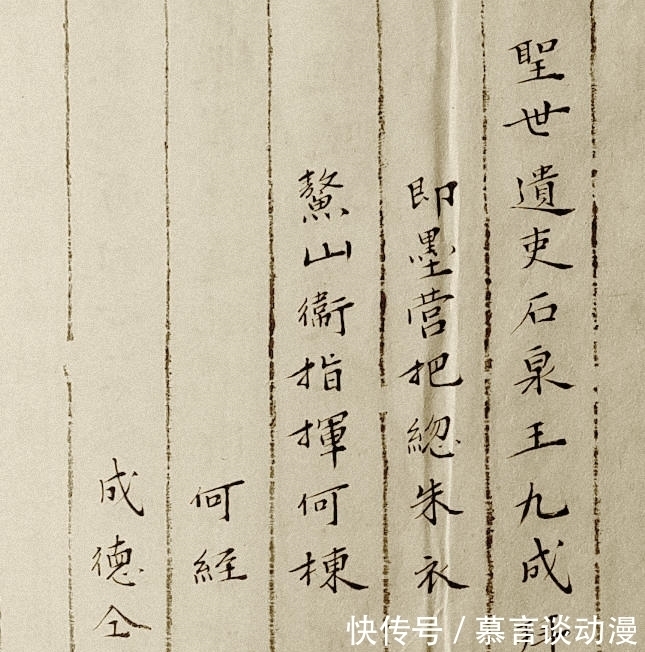 聖世遺吏石泉王九成
即墨营把総朱衣
鰲山衞指揮何棟
何経
成德仝
快传号 / 慕言谈动漫